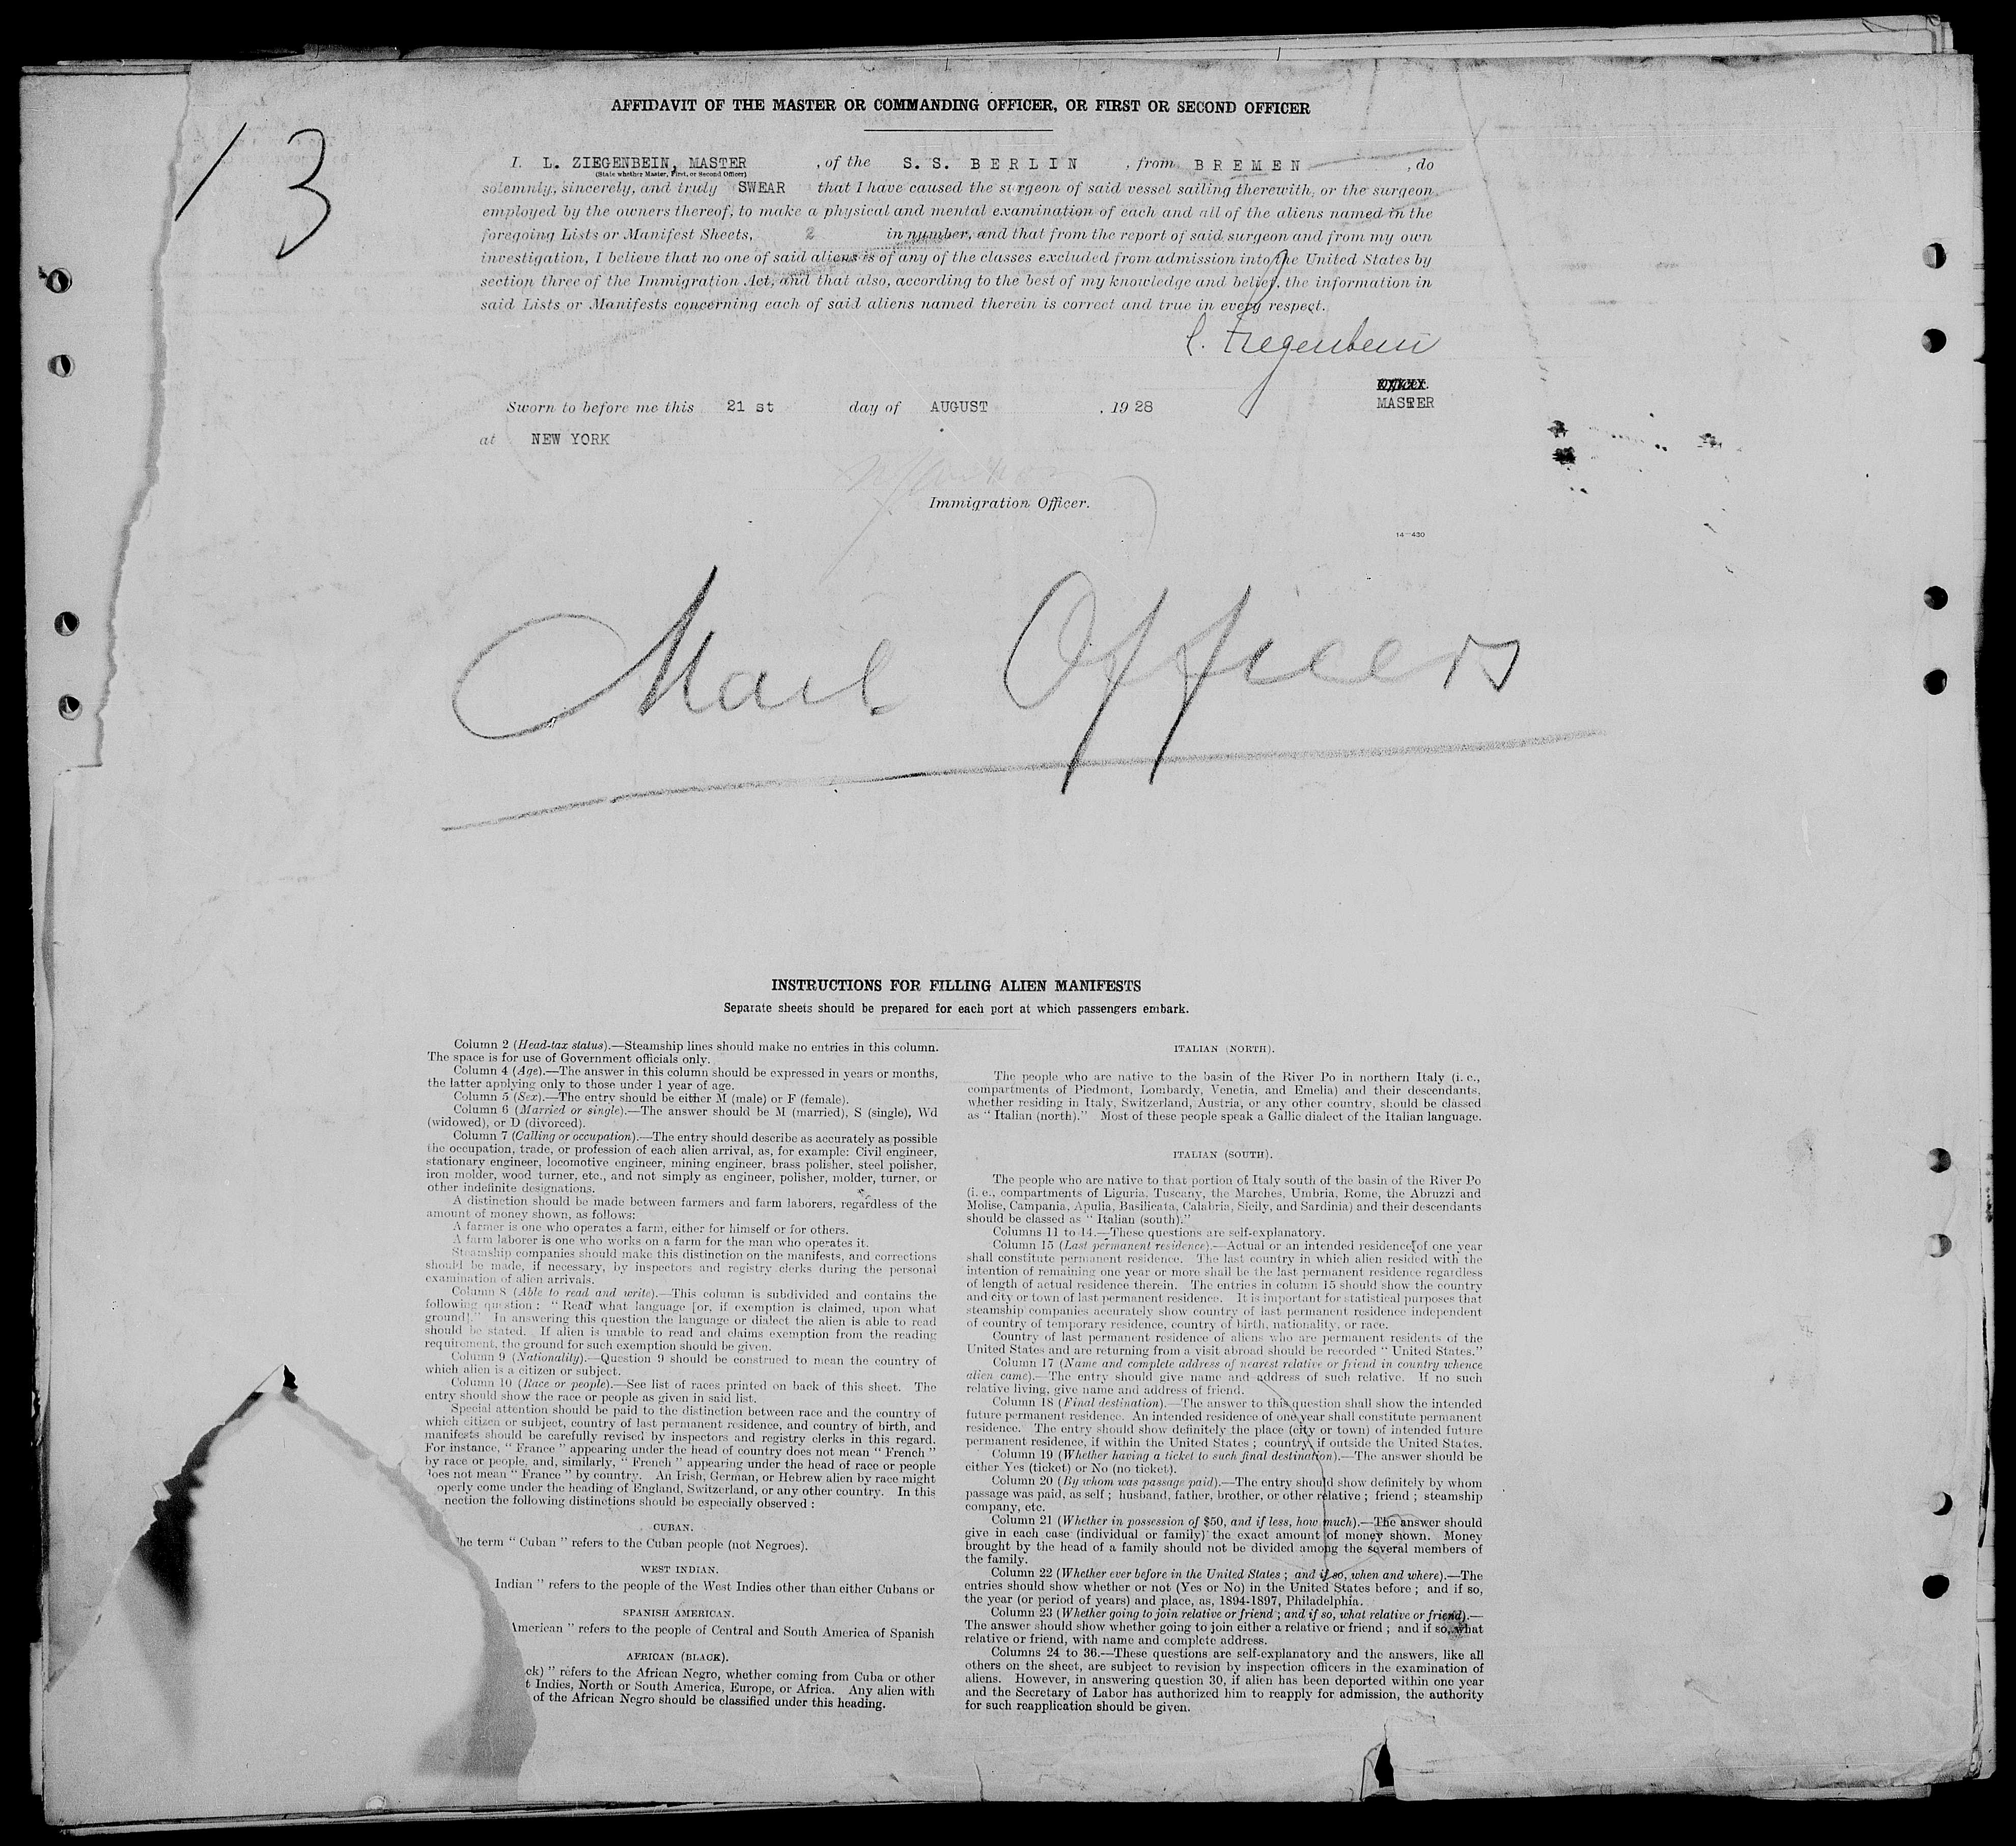 13
AFFIDAVIT OF THE MASTER OR COMMANDING OFFICER, OR FIRST OR SECOND OFFICER
I, L. ZIEGENBEIN, MASTER, of the S. S. BERLIN, from BREMEN, do
(State whether Master, First, or Second Officer)
solemnly, sincerely, and truly SWEAR that I have caused the surgeon of said vessel sailing therewith, or the surgeon
employed by the owners thereof, to make a physical and mental examination of each and all of the aliens named in the
foregoing Lists or Manifest Sheets, 2 in number, and that from the report of said surgeon and from my own
investigation, I believe that no one of said aliens is of any of the classes excluded from admission into the United States by
section three of the Immigration Act, and that also, according to the best of my knowledge and belief, the information in
said Lists or Manifests concerning each of said aliens named therein is correct and true in every respect.
L. Ziegenbein
Officer.
Sworn to before me this 21 st day of AUGUST, 1928 MASTER
at NEW YORK
Immigration Officer.
14—430
Mail Officers
INSTRUCTIONS FOR FILLING ALIEN MANIFESTS
Separate sheets should be prepared for each port at which passengers embark.
Column 2 (Head-tax status).—Steamship lines should make no entries in this column.
The space is for use of Government officials only.
Column 4 (Age).—The answer in this column should be expressed in years or months,
the latter applying only to those under 1 year of age.
Column 5 (Sex).—The entry should be either M (male) or F (female).
Column 6 (Married or single).—The answer should be M (married), S (single), Wd
(widowed), or D (divorced).
Column 7 (Calling or occupation).—The entry should describe as accurately as possible
the occupation, trade, or profession of each alien arrival, as, for example: Civil engineer,
stationary engineer, locomotive engineer, mining engineer, brass polisher, steel polisher,
iron molder, wood turner, etc., and not simply as engineer, polisher, molder, turner, or
other indefinite designations.
A distinction should be made between farmers and farm laborers, regardless of the
amount of money shown, as follows:
A farmer is one who operates a farm, either for himself or for others.
A farm laborer is one who works on a farm for the man who operates it.
Steamship companies should make this distinction on the manifests, and corrections
should be made, if necessary, by inspectors and registry clerks during the personal
examination of alien arrivals.
Column 8 (Able to read and write).—This column is subdivided and contains the
following question: "Read what language [or, if exemption is claimed, upon what
ground]." In answering this question the language or dialect the alien is able to read
should be stated. If alien is unable to read and claims exemption from the reading
requirement, the ground for such exemption should be given.
Column 9 (Nationality).—Question 9 should be construed to mean the country of
which alien is a citizen or subject.
Column 10 (Race or people).—See list of races printed on back of this sheet. The
entry should show the race or people as given in said list.
Special attention should be paid to the distinction between race and the country of
which citizen or subject, country of last permanent residence, and country of birth, and
manifests should be carefully revised by inspectors and registry clerks in this regard.
For instance, "France" appearing under the head of country does not mean "French"
by race or people, and, similarly, "French" appearing under the head of race or people
does not mean "France" by country. An Irish, German, or Hebrew alien by race might
operly come under the heading of England, Switzerland, or any other country. In this
nection the following distinctions should be especially observed:
CUBAN.
The term "Cuban" refers to the Cuban people (not Negroes).
WEST INDIAN.
Indian" refers to the people of the West Indies other than either Cubans or
SPANISH AMERICAN.
American" refers to the people of Central and South America of Spanish
AFRICAN (BLACK).
ck)" refers to the African Negro, whether coming from Cuba or other
t Indies, North or South America, Europe, or Africa. Any alien with
of the African Negro should be classified under this heading.
ITALIAN (NORTH).
The people who are native to the basin of the River Po in northern Italy (i. e.,
compartments of Piedmont, Lombardy, Venetia, and Emelia) and their descendants,
whether residing in Italy, Switzerland, Austria, or any other country, should be classed
as "Italian (north)." Most of these people speak a Gallic dialect of the Italian language.
ITALIAN (SOUTH).
The people who are native to that portion of Italy south of the basin of the River Po
(i. e., compartments of Liguria, Tuscany, the Marches, Umbria, Rome, the Abruzzi and
Molise, Campania, Apulia, Basilicata, Calabria, Sicily, and Sardinia) and their descendants
should be classed as "Italian (south)."
Columns 11 to 14.—These questions are self-explanatory.
Column 15 (Last permanent residence).—Actual or an intended residence of one year
shall constitute permanent residence. The last country in which alien resided with the
intention of remaining one year or more shall be the last permanent residence regardless
of length of actual residence therein. The entries in column 15 should show the country
and city or town of last permanent residence. It is important for statistical purposes that
steamship companies accurately show country of last permanent residence independent
of country of temporary residence, country of birth, nationality, or race.
Country of last permanent residence of aliens who are permanent residents of the
United States and are returning from a visit abroad should be recorded "United States."
Column 17 (Name and complete address of nearest relative or friend in country whence
alien came).—The entry should give name and address of such relative. If no such
relative living, give name and address of friend.
Column 18 (Final destination).—The answer to this question shall show the intended
future permanent residence. An intended residence of one year shall constitute permanent
residence. The entry should show definitely the place (city or town) of intended future
permanent residence, if within the United States; country, if outside the United States.
Column 19 (Whether having a ticket to such final destination).—The answer should be
either Yes (ticket) or No (no ticket).
Column 20 (By whom was passage paid).—The entry should show definitely by whom
passage was paid, as self; husband, father, brother, or other relative; friend; steamship
company, etc.
Column 21 (Whether in possession of $50, and if less, how much).—The answer should
give in each case (individual or family) the exact amount of money shown. Money
brought by the head of a family should not be divided among the several members of
the family.
Column 22 (Whether ever before in the United States; and if so, when and where).—The
entries should show whether or not (Yes or No) in the United States before; and if so,
the year (or period of years) and place, as, 1894-1897, Philadelphia.
Column 23 (Whether going to join relative or friend; and if so, what relative or friend).—
The answer should show whether going to join either a relative or friend; and if so, what
relative or friend, with name and complete address.
Columns 24 to 36.—These questions are self-explanatory and the answers, like all
others on the sheet, are subject to revision by inspection officers in the examination of
aliens. However, in answering question 30, if alien has been deported within one year
and the Secretary of Labor has authorized him to reapply for admission, the authority
for such reapplication should be given.